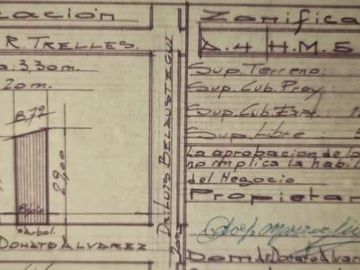 cación
R. TRELLES.
a. 3,30 m.
20 m.
8,79
29,00
DONATO ALVAREZ
Dr. LUIS BELAUSTEGUI
Zonifica
A.4 H.M.E
Sup. Terreno:
Sup. Cub. Proy.
Sup. Cub. Ext.
Sup. Libre
La aprobacion de lo
no implica la habil
del Negocio
Propietar
Dom. Donato Alvar